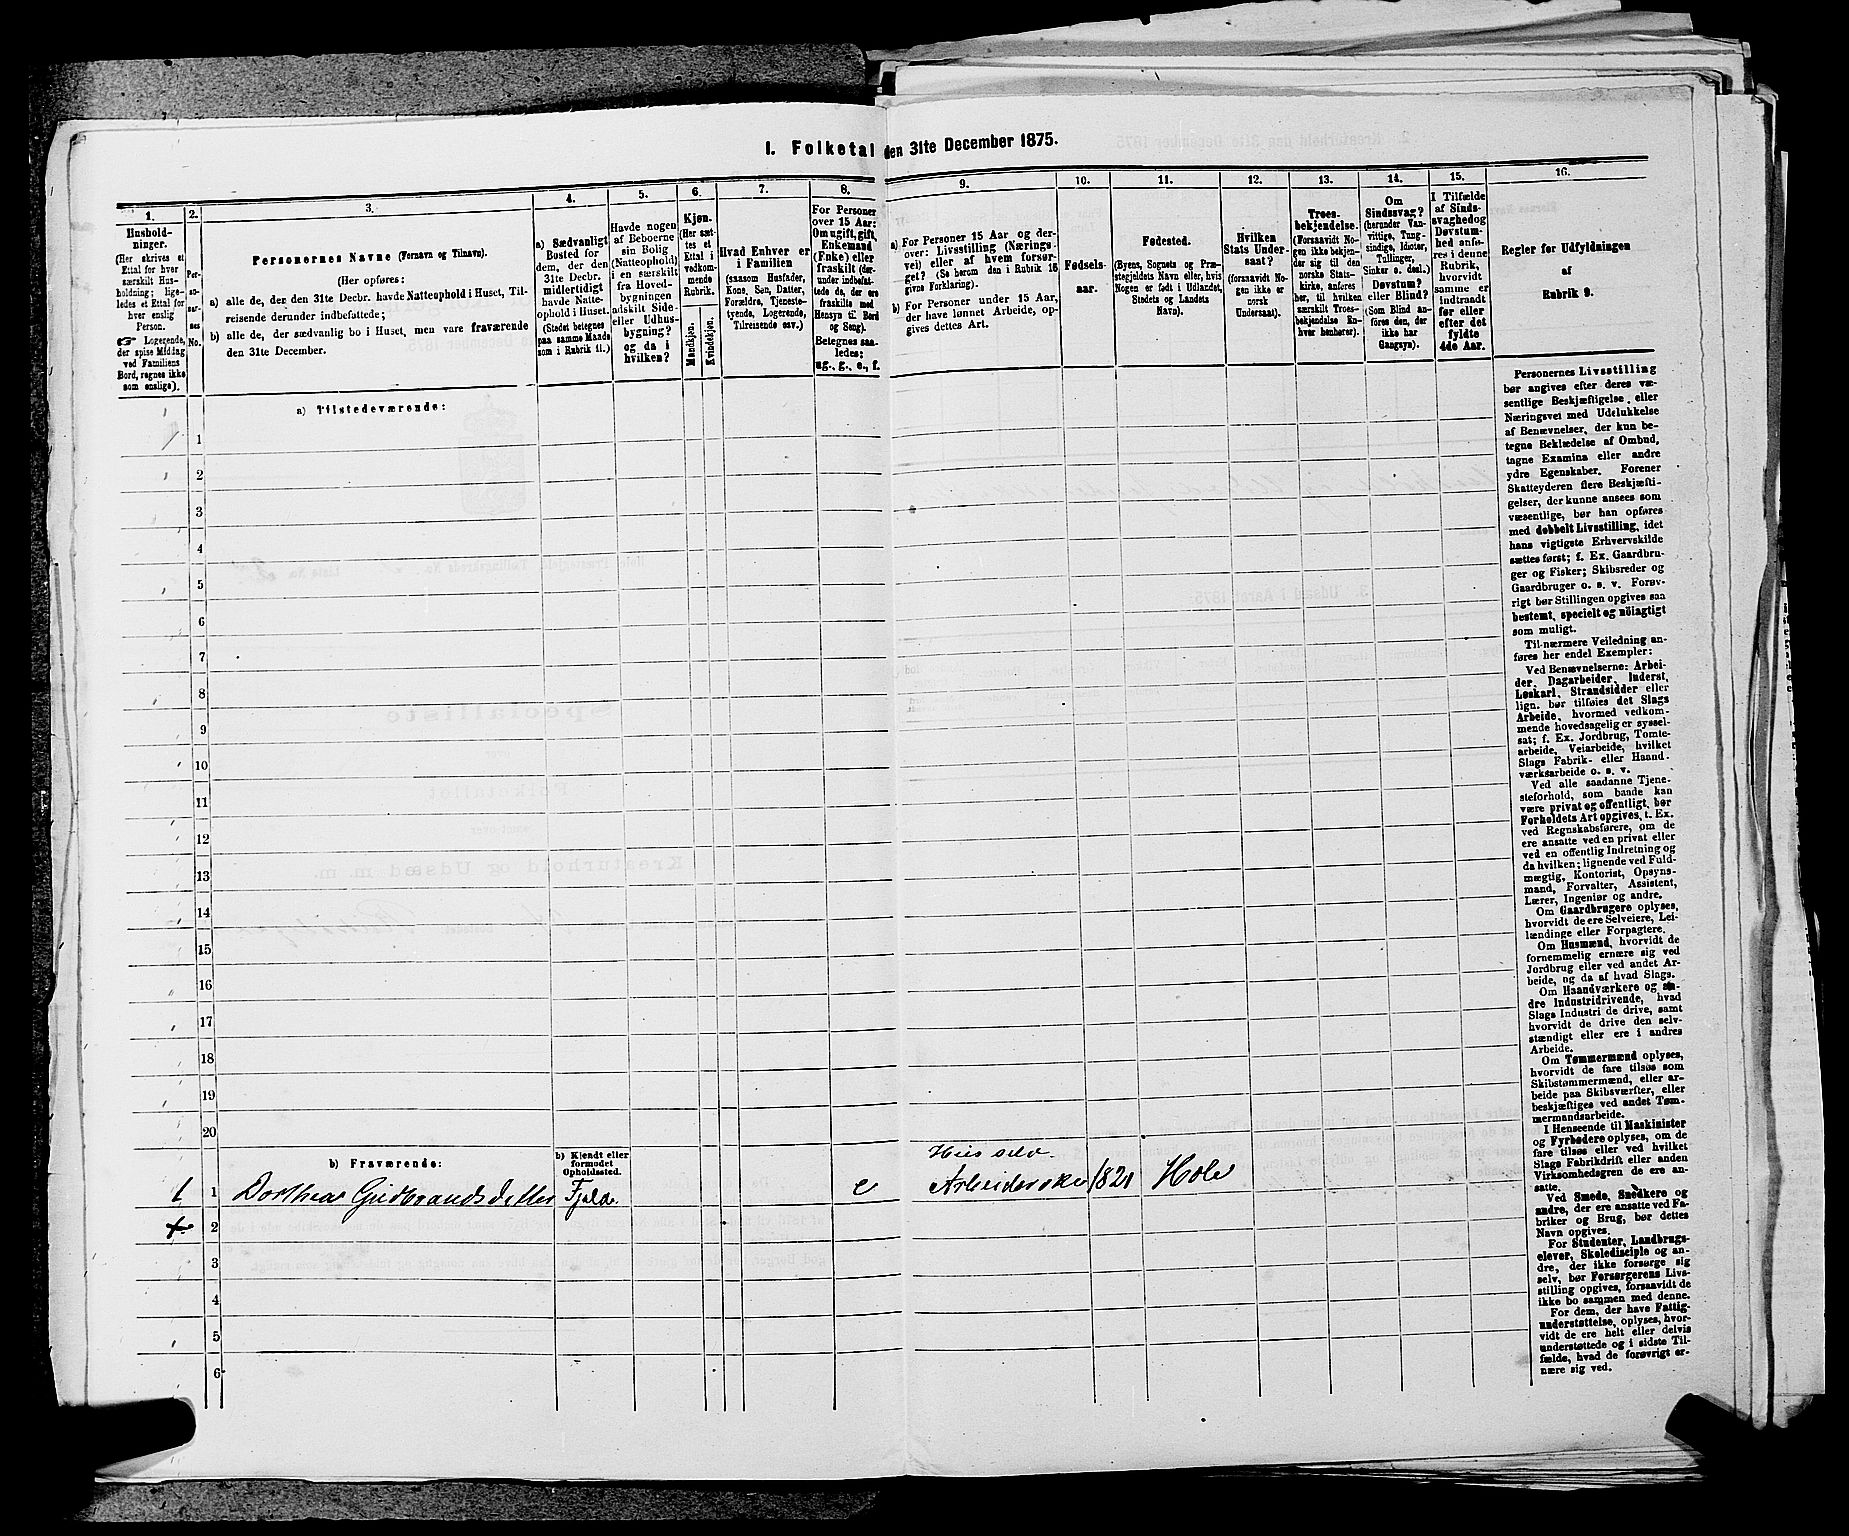 I. Folketal den 31te December 1875.
1.
2.
3.
4.
5.
6.
7.
8.
9.
10.
11.
12.
13.
14.
15.
16.
Hushold-
ninger.
(Her skrives et
Ettal for hver
særskilt Hus-
holdning; lige-
ledes et Ettal for
hver enslig
Person.
☞ Logerende,
der spise Middag
ved Familiens
Bord, regnes ikke
som enslige).
Per-
so-
ner-
nes
No.
Personernes Navne (Fornavn og Tilnavn).
(Her opføres:
a) alle de, der den 31te Decbr. havde Natteophold i Huset, Til-
reisende derunder indbefattede;
b) alle de, der sædvanlig bo i Huset, men vare fraværende
den 31te December.
a) Sædvanligt
Bosted for
dem, der den
31te Decbr.
midlertidigt
havde Natte-
ophold i Huset.
(Stedet betegnes
paa samme Maade
som i Rubrik 11.)
Havde nogen
af Beboerne
sin Bolig
(Natteophold)
i en særskilt
fra Hoved-
bygningen
adskilt Side-
eller Udhus-
bygning?
og da i
hvilken?
Kjøn.
(Her sæt-
tes et
Ettal i
vedkom-
mende
Rubrik.
Mandkjøn.
Kvindekjøn.
Hvad Enhver er
i Familien
(saasom Husfader,
Kone, Søn, Datter,
Forældre, Tjeneste-
tyende, Logerende,
Tilreisende osv.)
For Personer
over 15 Aar:
Om ugift, gift,
Enkemand
(Enke) eller
fraskilt (der-
under indbefat-
tede de, der ere
fraskilte med
Hensyn til Bord
og Seng).
Betegnes saa-
ledes:
ug., g., e., f.
a) For Personer 15 Aar og der-
over: Livsstilling (Nærings-
vei) eller af hvem forsør-
get? (Se herom den i Rubrik 16
givne Forklaring).
b) For Personer under 15 Aar,
der have lønnet Arbeide, op-
gives dettes Art.
Fødsels-
aar.
Fødested.
(Byens, Sognets og Præ-
stegjeldets Navn eller, hvis
Nogen er født i Udlandet,
Stedets og Landets
Navn).
Hvilken
Stats Under-
saat?
(forsaavidt No-
gen ikke er
norsk
Undersaat).
Troes-
bekjendelse.
(Forsaavidt No-
gen ikke bekjen-
der sig til den
norske Stats-
kirke, anføres
her, til hvilken
særskilt Troes-
bekjendelse En-
hver henhører).
Om
Sindssvag?
(herunder Van-
vittige, Tung-
sindige, Idioter,
Tullinger,
Sinker o. desl.)
Døvstum?
eller Blind?
(Som Blind an-
føres den, der
ikke har
Gangsyn).
I Tilfælde
af Sinds-
svaghed og
Døvstum-
hed anfø-
res i denne
Rubrik,
hvorvidt
samme er
indtraadt
før eller
efter det
fyldte
4de Aar.
Regler for Udfyldningen
af
Rubrik 9.
a) Tilstedeværende:
1
2
3
4
5
6
7
8
9
10
11
12
13
14
15
16
17
18
19
20
b) Fraværende:
b) Kjendt eller
formodet
Opholdssted.
Hus selv.
1 1 Dorthea Gudbrandsdatter Fjeld e Arbeiderske 1821 Hole
2
3
4
5
6
Personernes Livsstilling
bør angives efter deres væ-
sentlige Beskjæftigelse eller
Næringsvei med Udelukkelse
af Benævnelser, der kun be-
tegne Beklædelse af Ombud,
tagne Examina eller andre
ydre Egenskaber. Forener
Skatteyderen flere Beskjæfti-
gelser, der kunne ansees som
væsentlige, bør han opføres
med dobbelt Livsstilling, idet
hans vigtigste Erhvervskilde
sættes først; f. Ex. Gaardbru-
ger og Fisker; Skibsreder og
Gaardbruger o. s. v. Forøv-
rigt bør Stillingen opgives saa
bestemt, specielt og nöiagtigt
som muligt.
Til nærmere Veiledning an-
føres her endel Exempler:
Ved Benævnelserne: Arbei-
der, Dagarbeider, Inderst,
Løskarl, Strandsidder eller
lign. bør tilføies det Slags
Arbeide, hvormed vedkom-
mende hovedsagelig er syssel-
sat; f. Ex. Jordbrug, Tomte-
arbeide, Veiarbeide, hvilket
Slags Fabrik- eller Haand-
værksarbeide o. s. v.
Ved alle saadanne Tjene-
steforhold, som baade kan
være privat og offentligt, bør
Forholdets Art opgives, t. Ex.
ved Regnskabsførere, om de
ere ansatte ved en privat eller
ved en offentlig Indretning og
da hvilken; lignende ved Fuld-
mægtig, Kontorist, Opsyns-
mand, Forvalter, Assistent,
Lærer, Ingeniør og andre.
Om Gaardbrugere oplyses,
hvorvidt de ere Selveiere, Lei-
lændinge eller Forpagtere.
Om Husmænd, hvorvidt de
fornemmelig ernære sig ved
Jordbrug eller ved andet Ar-
beide, og da af hvad Slags.
Om Haandværkere og an-
dre Industridrivende, hvad
Slags Industri de drive, samt
hvorvidt de drive den selv-
stændigt eller ere i andres
Arbeide.
Om Tømmermænd oplyses,
hvorvidt de fare tilsøs som
Skibstømmermænd, eller ar-
beide paa Skibsværfter, eller
beskjæftiges ved andet Tøm-
mermandsarbeide.
I Henseende til Maskinister
og Fyrbødere oplyses, om de
fare tilsøs eller ved hvilket
Slags Fabrikdrift eller anden
Virksomhedsgren de ere an-
satte.
Ved Smede, Snedkere og
andre, der ere ansatte ved Fa-
briker og Brug, bør dettes
Navn opgives.
For Studenter, Landbrugs-
elever, Skoledisciple og an-
dre, der ikke forsørge sig
selv, bør Forsørgerens Livs-
stilling opgives, forsaavidt de
ikke bo sammen med denne.
For dem, der have Fattig-
understøttelse, oplyses, hvor-
vidt de ere helt eller delvis
understøttede og i sidste Til-
fælde, hvad de forøvrigt er-
nære sig ved.